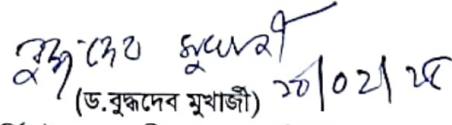 বুদ্ধদেব মুখার্জী
(ড.বুদ্ধদেব মুখার্জী) ২০/০২/২৫